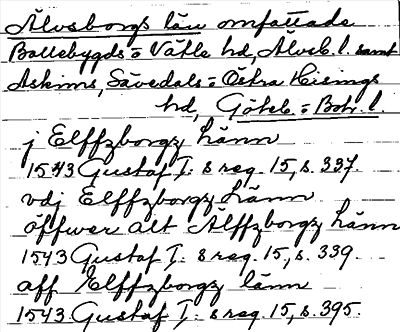 Älvsborgs län omfattade
Bollebygds = o Vätle hd, Älvsb. l. samt
Askims, Sävedals = o Östra Hisings
hd, Göteb. = o Boh. l.
j Elffzborgz länn
1543 Gustaf I:s reg. 15, s. 337.
vdj Elffzborgz länn
öffwer alt Älffzborgz länn
1543 Gustaf I:s reg. 15, s. 339
aff Elffzborgz länn
1543 Gustaf I:s reg. 15, s. 395.